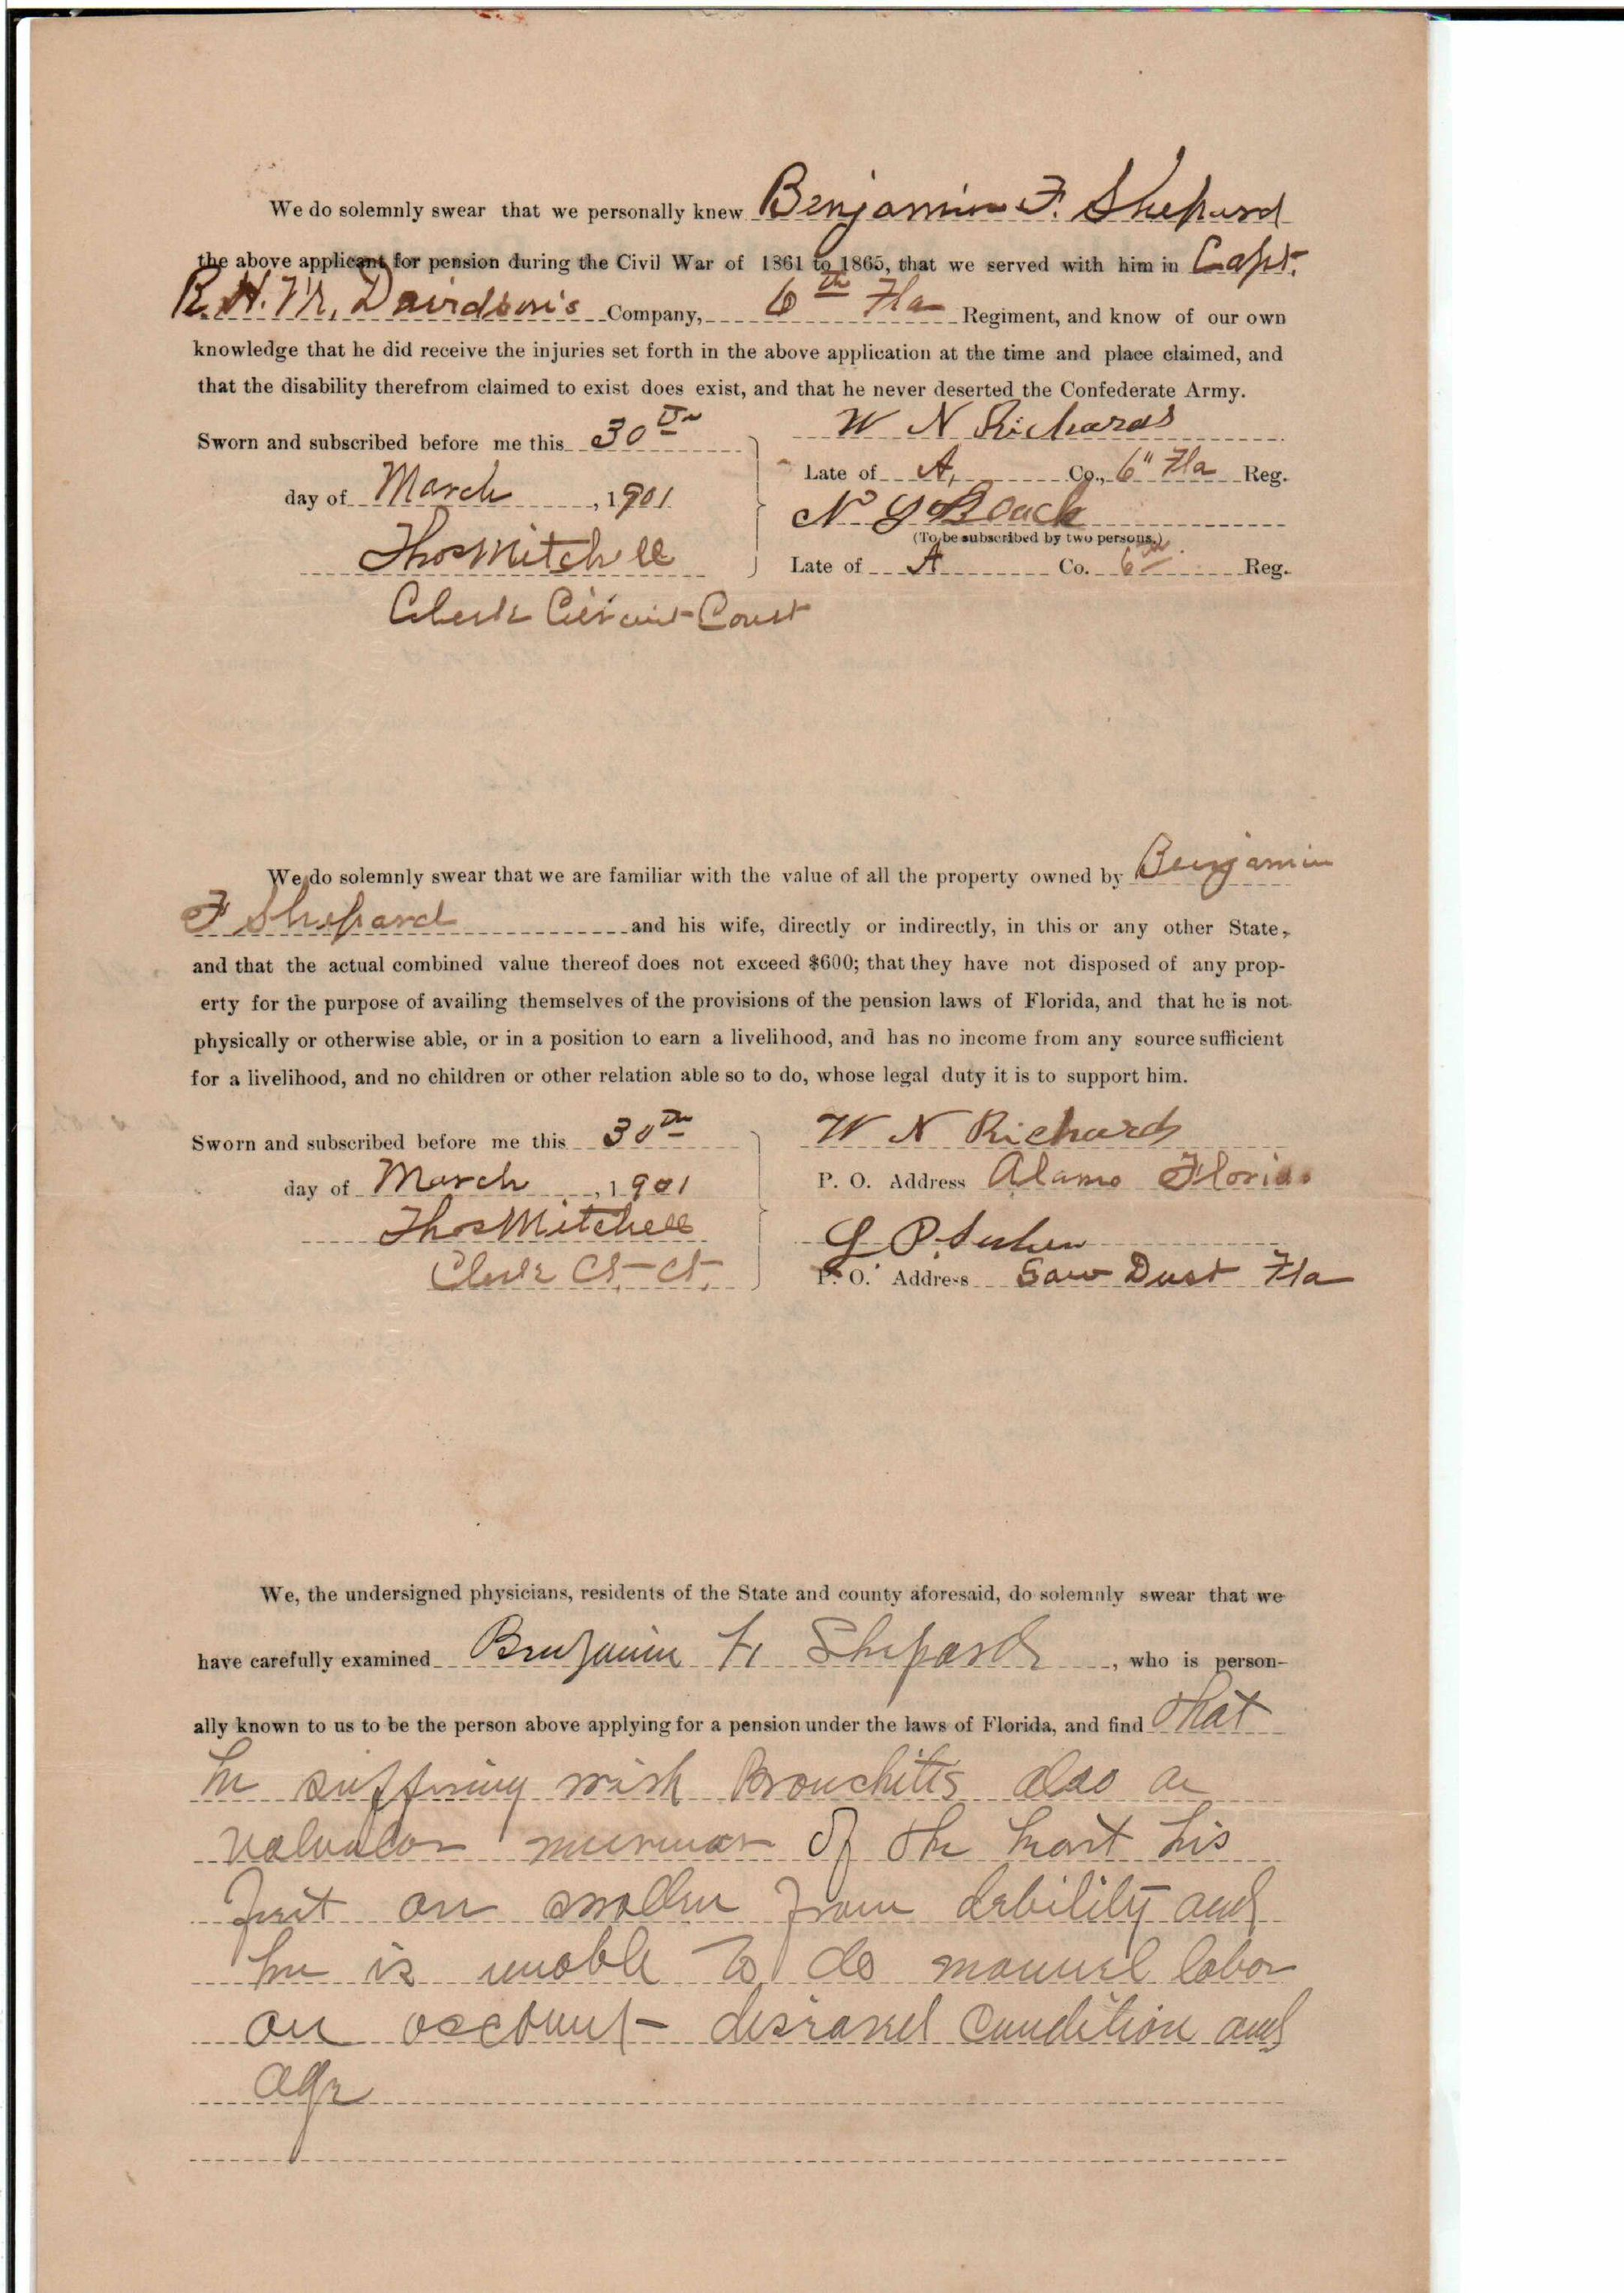 We do solemnly swear that we personally knew Benjamin F. Shepard
the above applicant for pension during the Civil War of 1861 to 1865, that we served with him in Capt.
R. H. M. Davidson's Company, 6th Fla Regiment, and know of our own
knowledge that he did receive the injuries set forth in the above application at the time and place claimed, and
that the disability therefrom claimed to exist does exist, and that he never deserted the Confederate Army.
W N Richards
Sworn and subscribed before me this 30th
Late of A, Co., 6" Fla Reg.
day of March, 1901
N
(To be subscribed by two persons.)
Thos Mitchell
Late of A Co. 6th Reg.
Clerk Circuit Court
We do solemnly swear that we are familiar with the value of all the property owned by Benjamin
F Shepard and his wife, directly or indirectly, in this or any other State,
and that the actual combined value thereof does not exceed $600; that they have not disposed of any prop-
erty for the purpose of availing themselves of the provisions of the pension laws of Florida, and that he is not
physically or otherwise able, or in a position to earn a livelihood, and has no income from any source sufficient
for a livelihood, and no children or other relation able so to do, whose legal duty it is to support him.
Sworn and subscribed before me this 30th
W N Richards
day of March, 1901
P. O. Address Alamo Florida
Thos Mitchell
Clerk Ct. Ct.
P. O. Address Saw Dust Fla
We, the undersigned physicians, residents of the State and county aforesaid, do solemnly swear that we
have carefully examined Benjamin F. Shepard, who is person-
ally known to us to be the person above applying for a pension under the laws of Florida, and find that
he suffering with Bronchitis also a
valvular murmur of the heart his
feet are swollen from debility and
he is unable to do manuel labor
on account diseased condition and
age